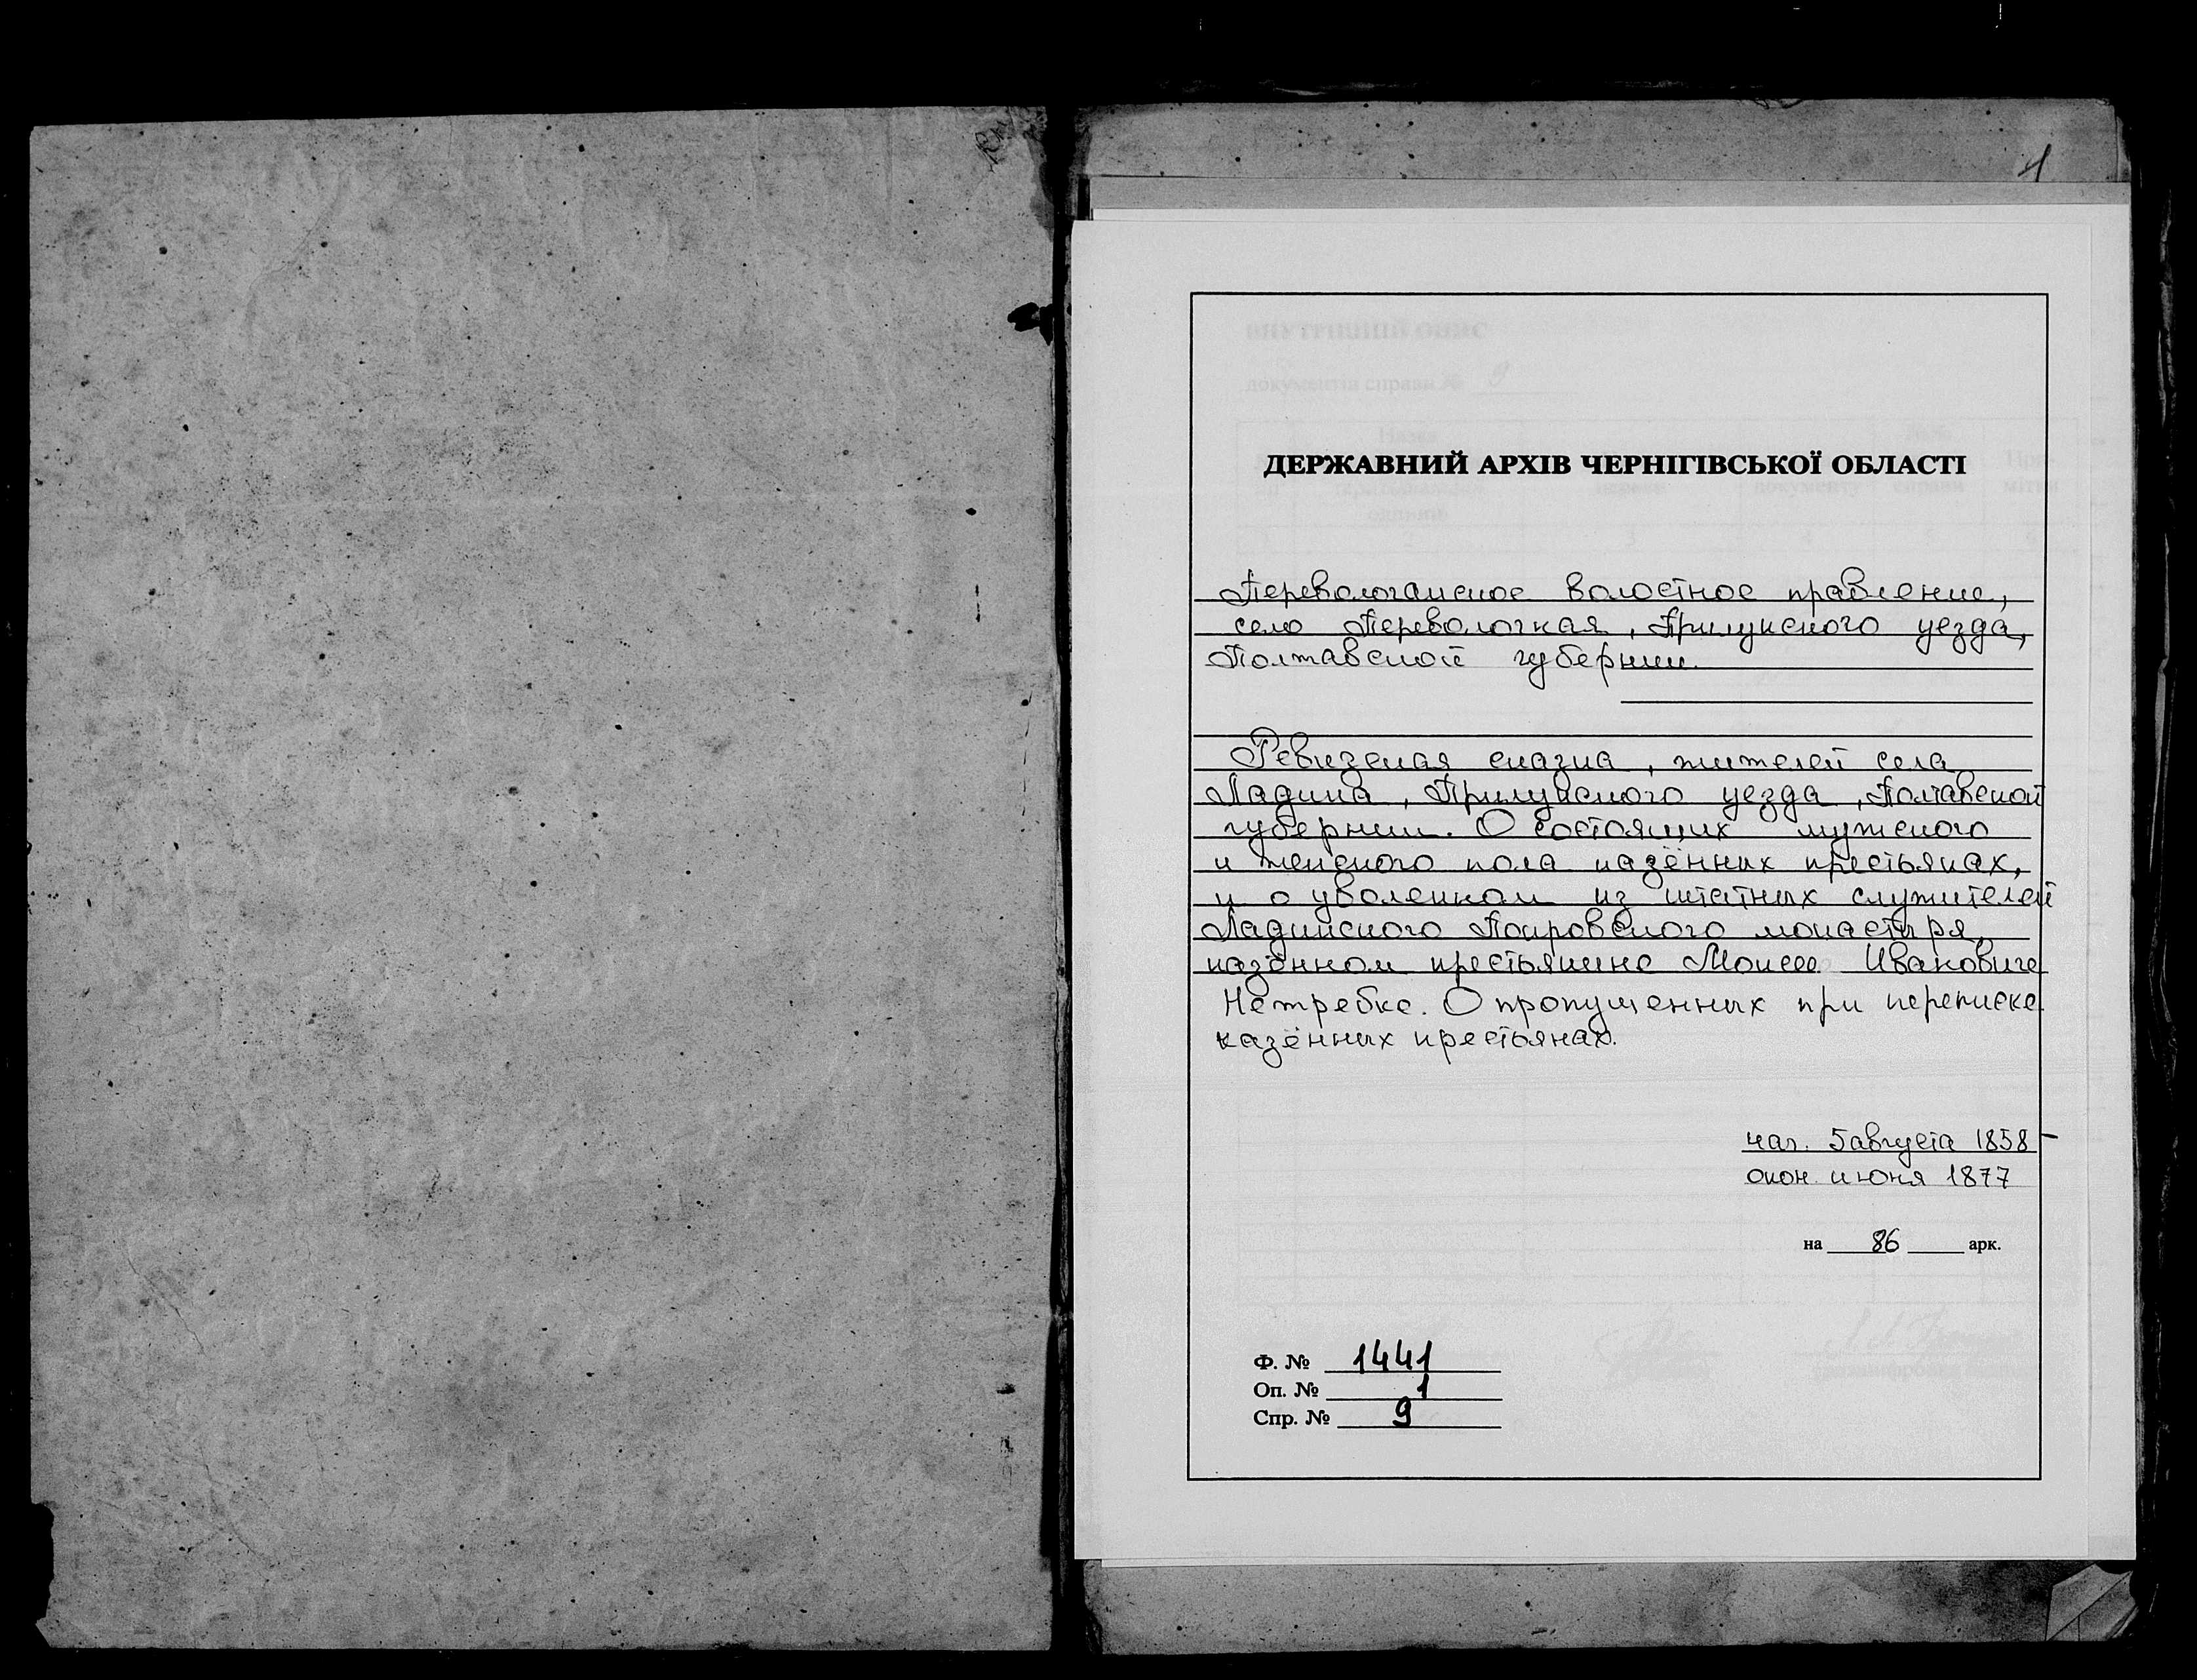 1
ДЕРЖАВНИЙ АРХІВ ЧЕРНІГІВСЬКОЇ ОБЛАСТІ
Переволочанское волостное правление,
село Переволочная, Прилукского уезда,
Полтавской губернии.
Ревизская сказка, жителей села
Ладина, Прилукского уезда, Полтавской
губернии. О состоящих мужского
и женского пола казённых крестьянах,
и о уволенном из штатных служителей
Ладинского Покровского монастыря,
казённом крестьянине Моисее Ивановиче
Нетребке. О пропущенных при переписке
казённых крестьянах.
нач. 5 августа 1858-
окон. июня 1877
на 86 арк.
Ф. № 1441
Оп. № 1
Спр. № 9